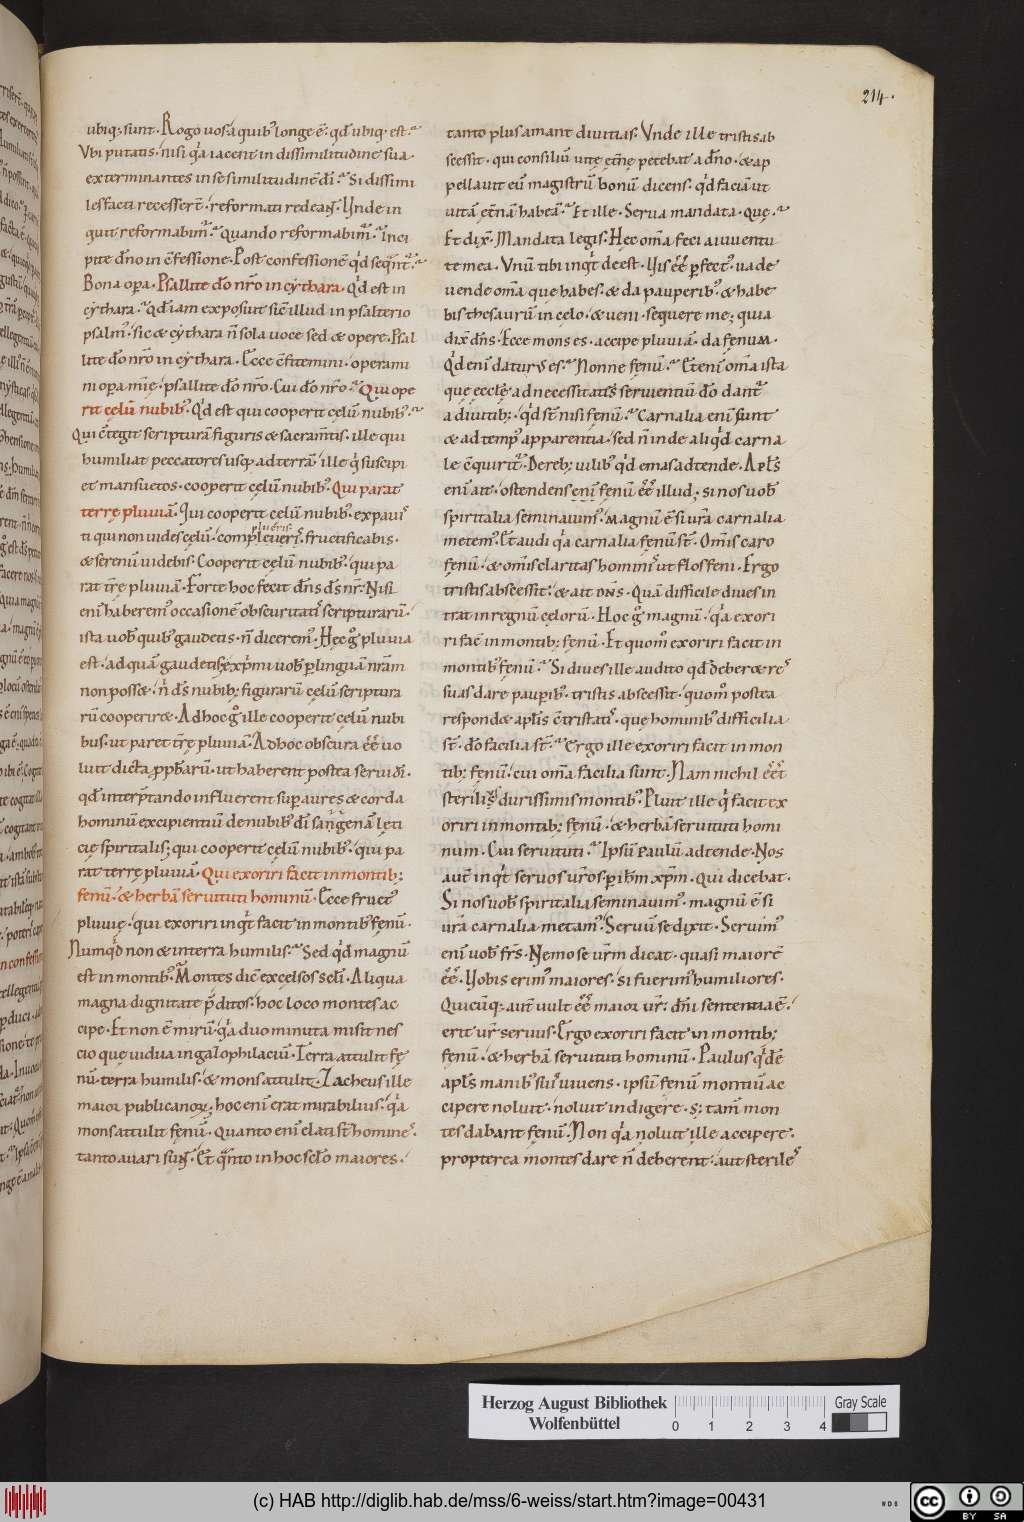 214.
ubiq; sunt. Rogo uos. a quib' longe ē. qđ ubiq; est.
Vbi putatis. nisi q̄a iacent in dissimilitudine sua.
exterminantes in se similitudinē dī. Si dissimi
les facti recesserт̄. reformati redeant. Vnde in
quit reformabim'. Quando reformabim'. Inci
pite dn̄o in cōfessione. Post confessionē qd̄ seqūnt'.
Bona opa. Psallite dō nr̄o in cythara. Qd̄ est in
cythara. qđ iam exposui sic illud in psalterio
psalm'. sic & cythara n̄ sola uoce sed & opere. Psal
lite dō nr̄o in cythara. Ecce cōfitemini. operami
ni opa mie. psallite dō nr̄o. Cui dō nr̄o. Qui ope
rit cęlū nubib'. Qd̄ est qui cooperit cęlū nubib'.
Qui cōtegit scripturā figuris & sacram̄tis. ille qui
humiliat peccatores usq; ad terrā. ille q̄ suscipi
et mansuetos. cooperit cęlū nubib'. Qui parat
terrę pluuiā. Qui cooperit cęlū nubib'. expauis
ti qui non uides cęlū. fructificabis.
& serenū uidebis. Cooperit cęlū nubib'. qui pa
rat tr̄ę pluuiā. Forte hoc fecit dn̄s ds̄ nr̄. Nisi
enī haberem' occasionē obscuritatis scripturarū.
ista uob̄ quib' gaudetis. n̄ dicerem'. Hęc g̊ pluuia
est. ad quā gaudetis. exp̄mi uob̄ p linguā nr̄am
non posset. n̄ ds̄ nubib; figurarū cęlū scriptura
rū cooperiret. Ad hoc g̊ ille cooperit cęlū nubi
bus. ut paret tr̄ę pluuiā. Ad hoc obscura eē uo
luit dicta pph̄arū. ut haberent postea serui dī.
qđ interp̄tando influerent sup aures & corda
hominū excipientiū de nubib' dī saginā lęti
cię spiritalis; qui cooperit cęlū nubib'. qui pa
rat terrę pluuiā. Qui exoriri facit in montib;
fenū. & herbā seruituti hominū. Ecce fruct'
pluuię. qui exoriri inqt facit in montib' fenū.
Numqd̄ non & in terra humilis. Sed qd̄ magnū
est in montib'. Montes dic̄ excelsos scl̄i. Aliqua
magna dignitate p̄ditos. hoc loco montes ac
cipe. Et non ē mirū. q̄a duo minuta misit nes
cio que uidua in galophilaciū. Terra attulit fę
nū. terra humilis. & mons attulit. Zacheus ille
maior publicanoꝝ; hoc enī erat mirabilius. q̄a
mons attulit fęnū. Quanto enī elati st̄ homines.
tanto auari sunt. Et qn̄to in hoc sclo maiores.
tanto plus amant diuitias. Vnde ille tristis ab
scessit. qui consiliū uitę etn̄ę petebat a dn̄o. & ap
pellauit eū magistrū bonū dicens. qd̄ faciā ut
uitā etn̄ā habeā. Et ille. Serua mandata. Quę.
Et dix̄. Mandata legis. Hęc om̄a feci a iuuentu
te mea. Vnū tibi inqt deest. Vis eē pfect'. uade
uende om̄a que habes. & da pauperib'. & habe
bis thesaurū in cęlo. & ueni. sequere me; quia
dix̄ dn̄s. Ecce mons es. accipe pluuiā. da fenum.
Qd̄ enī daturus es. Nonne fęnū. Etenī om̄a ista
que ecclę ad necessitatēs seruientiū dō dant'
a diuitib;. qd̄ st̄ nisi fęnū. Carnalia enī sunt
& ad temp' apparentia. sed n̄ inde aliqd̄ carna
le cōquirit'. De reb; uilib' qd̄ emas adtende. Apls̄
enī ait. ostendens enī fęnū eē illud; si nos uob̄
spiritalia seminauim'. magnū ē si ur̄a carnalia
metem'. Et audi q̄a carnalia fęnū st̄. Omīs caro
fęnū. & omīs claritas hominis ut flos feni. Ergo
tristis abscessit. & ait dn̄s. Quā difficile diues in
trat in regnū cęlorū. Hoc g̊ magnū. q̄a exori
ri faē in montib; fęnū. Et quom̊ exoriri facit in
montib' fęnū. Si diues ille audito qđ deberet res
suas dare paupib'. tristis abscessit. quom̊ postea
respondet apls̄ cōtristatis. que hominib' difficilia
st̄. dō facilia st̄. Ergo ille exoriri facit in mon
tib; fęnū. cui om̄a facilia sunt. Nam nichil eēt
sterilius durissimis montib'. Pluit ille q̄ facit ex
oriri in montib; fęnū. & herbā seruituti homi
num. Cui seruituti. Ipsū Paulū adtende. Nos
aut̄ inqt seruos ur̄os p ih̄m xp̄m. qui dicebat.
Si nos uob̄ spiritalia seminauim'. magnū ē si
ur̄a carnalia metam'. Seruū se dixit. Seruim'
enī uob̄ frs̄. Nemo se ur̄m dicat. quasi maiorē
eē. Vobis erim' maiores. si fuerim' humiliores.
Quicūq; aut̄ uult eē maior ur̄. dn̄i sententia ē.
erit ur̄ seruus. Ergo exoriri facit in montib;
fęnū. & herbā seruituti hominū. Paulus qd̄ē
apls̄ manib' suis uiuens. ipsū fęnū montiū ac
cipere noluit. noluit indigere. s; tam̄ mon
tes dabant fęnū. Non q̄a noluit ille accipere.
propterea montes dare n̄ deberent. aut steriles
Herzog August Bibliothek
Wolfenbüttel
0 1 2 3 4
Gray Scale
(c) HAB http://diglib.hab.de/mss/6-weiss/start.htm?image=00431
cc BY SA